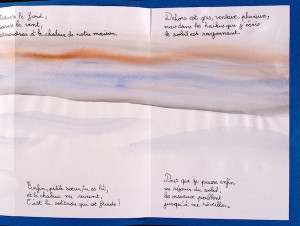 le froid,
le vent,
et la chaleur de notre maison.
Dehors est gris, venteux, pluvieux,
mais dans les haïkus que j'écris
le soleil est rayonnant.
Enfin, petite sœur tu es là,
et la chaleur me revient,
C'est la solitude qui est froide !
Pour que je puisse enfin
me réjouir du soleil,
les oiseaux piaillent
jusqu'à me réveiller.